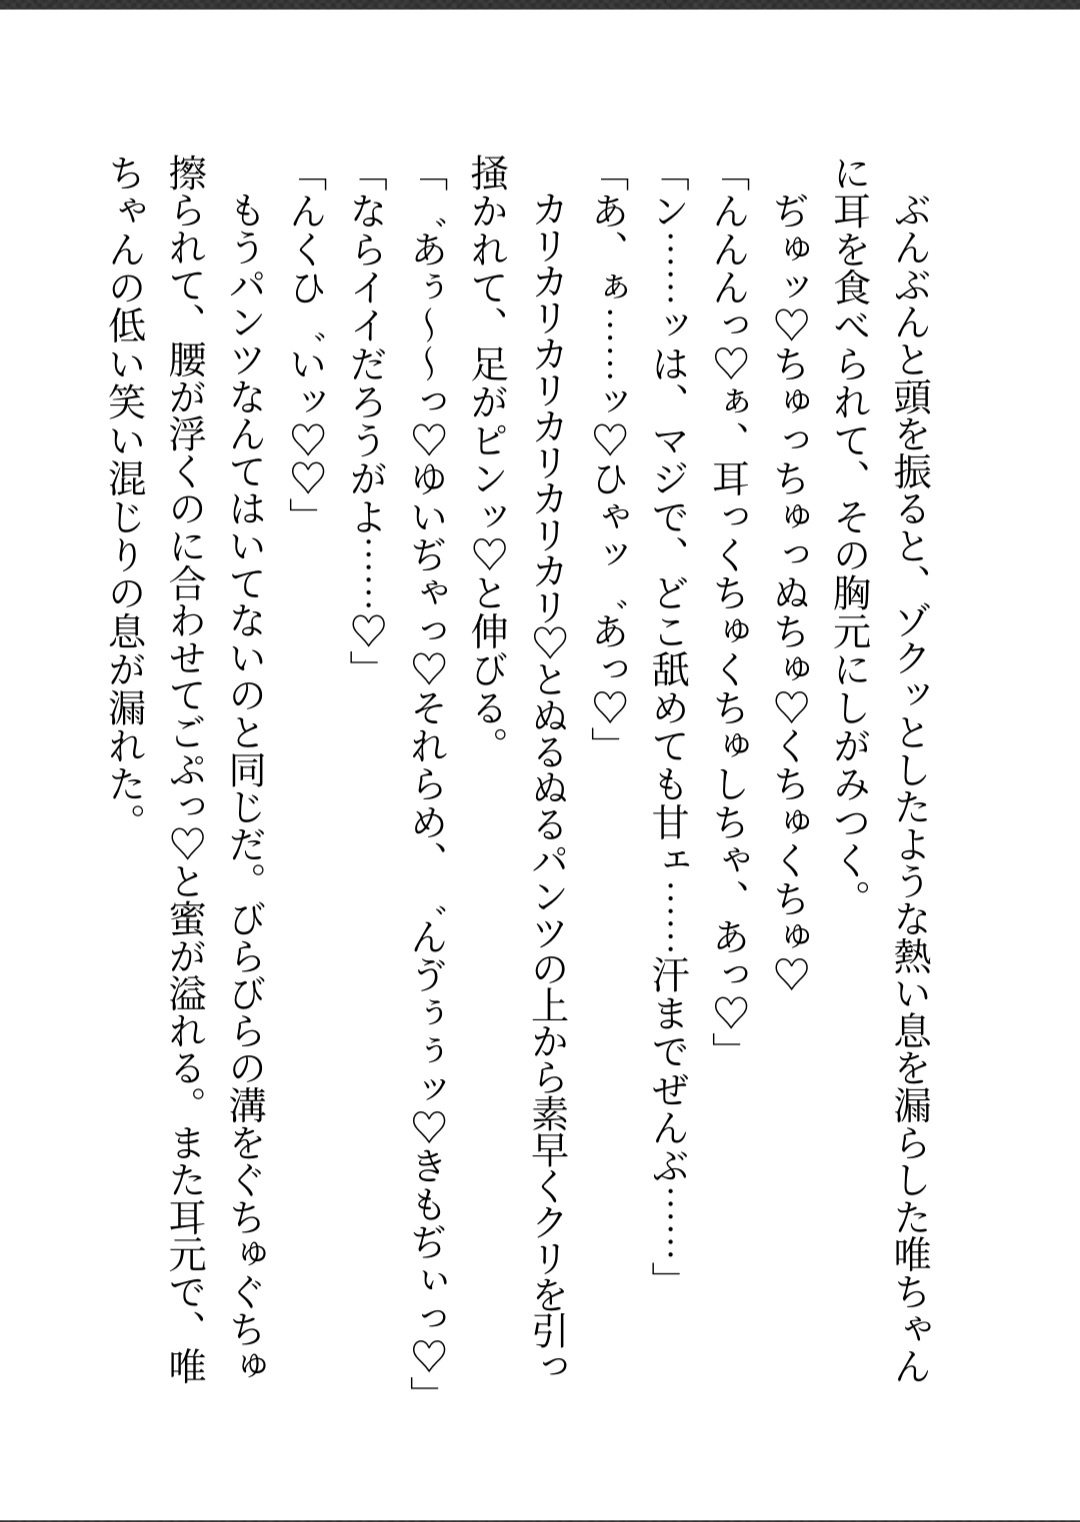 ぶんぶんと頭を振ると、ゾクッとしたような熱い息を漏らした唯ちゃん
に耳を食べられて、その胸元にしがみつく。
ぢゅッ♡ちゅっちゅっぬちゅ♡くちゅくちゅ♡
「んんんっ♡ぁ、耳っくちゅくちゅしちゃ、あっ♡」
「ン……ッは、マジで、どこ舐めても甘ェ……汗までぜんぶ……」
「あ、ぁ……ッ♡ひゃッ゛あっ♡」
カリカリカリカリカリカリ♡とぬるぬるパンツの上から素早くクリを引っ
掻かれて、足がピンッ♡と伸びる。
「゛あぅ～～っ♡ゆいぢゃっ♡それらめ、゛んゔぅぅッ♡きもぢぃっ♡」
「ならイイだろうがよ……♡」
「んくひ゛いッ♡♡」
もうパンツなんてはいてないのと同じだ。びらびらの溝をぐちゅぐちゅ
擦られて、腰が浮くのに合わせてごぷっ♡と蜜が溢れる。また耳元で、唯
ちゃんの低い笑い混じりの息が漏れた。